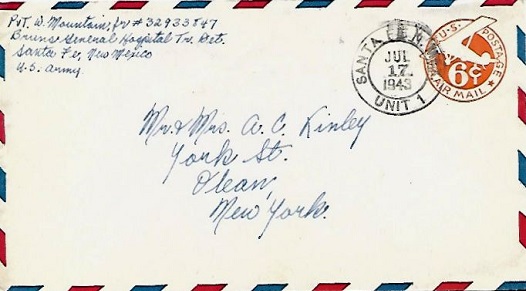 Pvt. W. Mountain, Jr # 32933847
Bruns General Hospital Tr. Det.
Santa Fe, New Mexico
U.S. Army
SANTA FE, N.
JUL
17
1943
UNIT 1
U.S. POSTAGE
6¢
AIR MAIL
Mr & Mrs. A. C. Kinley
York St.
Olean,
New York.